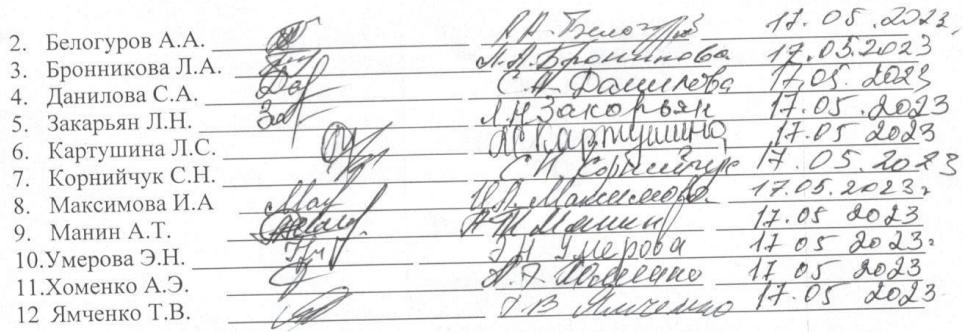 2. Белогуров А.А. А.А. Белогуров 17.05.2023.
3. Бронникова Л.А. Л.А. Бронникова 17.05.2023
4. Данилова С.А. Дан С.А Данилова 17.05.2023
5. Закарьян Л.Н. Зак Л.Н Закорьян 17.05.2023
6. Картушина Л.С. ЛС Картушина 17.05 2023
7. Корнийчук С.Н. С.Н. Корнийчук 17.05.2023
8. Максимова И.А И.А. Максимова. 17.05.2023г
9. Манин А.Т. А Т Манин 17.05 2023
10.Умерова Э.Н. Э.Н Умерова 17 05 2023г
11.Хоменко А.Э. А.Э. Хоменко 17 05 2023
12 Ямченко Т.В. Т.В Ямченко 17.05 2023